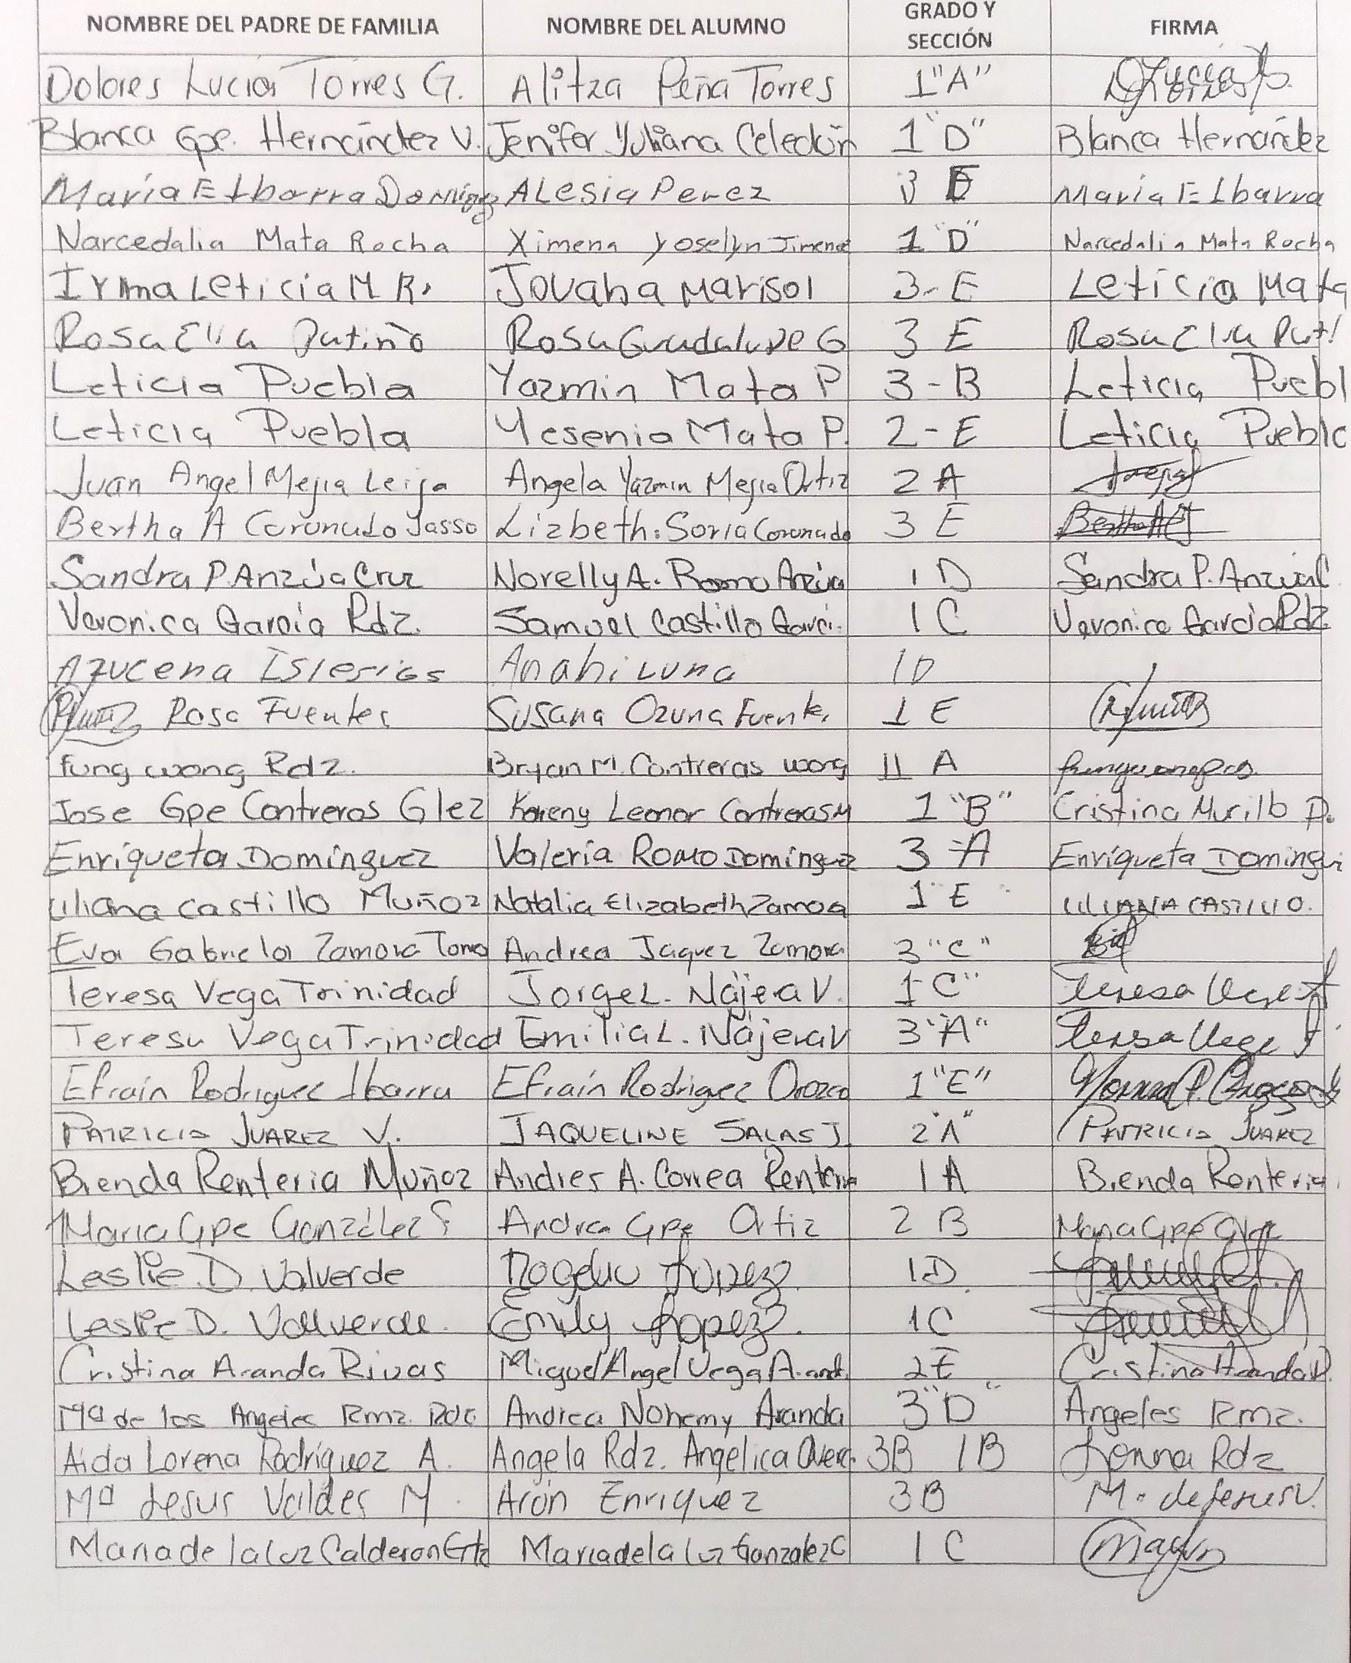 NOMBRE DEL PADRE DE FAMILIA NOMBRE DEL ALUMNO GRADO Y SECCIÓN FIRMA
Dolores Lucia Torres G. Alitza Peña Torres 1"A"
Blanca Gpe. Hernández V. Jenifer Yuliana Celedón 1"D" Blanca Hernández
María E Ibarra Doming ALesia Perez 3 E María E Ibarra
Narcedalia Mata Rocha Ximena Yoselyn Jimenez 1"D" Narcedalia Mata Rocha
Irma Leticia M R. Jovana Marisol 3-E Leticia Mata
Rosa Elia Patiño Rosa Guadalupe G 3 E Rosa Elia Pati
Leticia Puebla Yazmin Mata P 3-B Leticia Puebl
Leticia Puebla Yesenia Mata P. 2-E Leticia Puebla
Juan Angel Mejia Leija Angela Yazmin Mejia Ortiz 2 A
Bertha A Coronado Jasso Lizbeth Soria Coronado 3 E Bertha ACJ
Sandra P. Anzúa Cruz Norelly A. Romo Anzúa 1 D Sandra P. Anzúa C
Veronica García Rdz. Samuel Castillo Garci. 1 C Veronica García Rdz
Azucena Islerias Anahi Luna 1D
Rosa Fuentes Susana Ozuna Fuente. 1 E
Fung wong Rdz. Bryan M. Contreras wong 11 A
Jose Gpe Contreras Glez Kareny Leonor Contreras M 1"B" Cristina Murillo P.
Enriqueta Domínguez Valeria Romo Domínguez 3-A Enriqueta Domingu
Liliana Castillo Muñoz Natalia Elizabeth Zamora 1"E" LILIANA CASTILLO.
Eva Gabriela Zamora Torres Andrea Jaquez Zamora 3"C"
Teresa Vega Trinidad Jorge L. Nájera V. 1"C" Teresa Vega T
Teresa Vega Trinidad Emilia L. Nájera V 3"A" Teresa Vega T
Efraín Rodríguez Ibarra Efraín Rodriguez Orozco 1"E" Norma P. Orozco
PATRICIA JUAREZ V. JAQUELINE SALAS J. 2"A" PATRICIA JUAREZ
Brenda Renteria Muñoz Andres A. Correa Renteria 1 A Brenda Renteria
Maria Gpe González S Andrea Gpe Ortiz 2 B Maria Gpe Glez
Leslie D Valverde Rogelio Lopez 1D
Leslie D. Vallverde. Emily Lopez. 1C
Cristina Aranda Rivas Miguel Angel Vega Arand. 2E Cristina Aranda R.
Mª de los Angeles Rmz. Rdz Andrea Nohemy Aranda 3"D" Angeles Rmz.
Aida Lorena Rodríguez A. Angela Rdz. Angelica 3B 1B Lorena Rdz
Mª Jesus Valdes M. Aron Enriquez 3B M. de Jesus V.
Maria de la Luz Calderon Gtz Maria de la Luz Gonzalez C 1 C